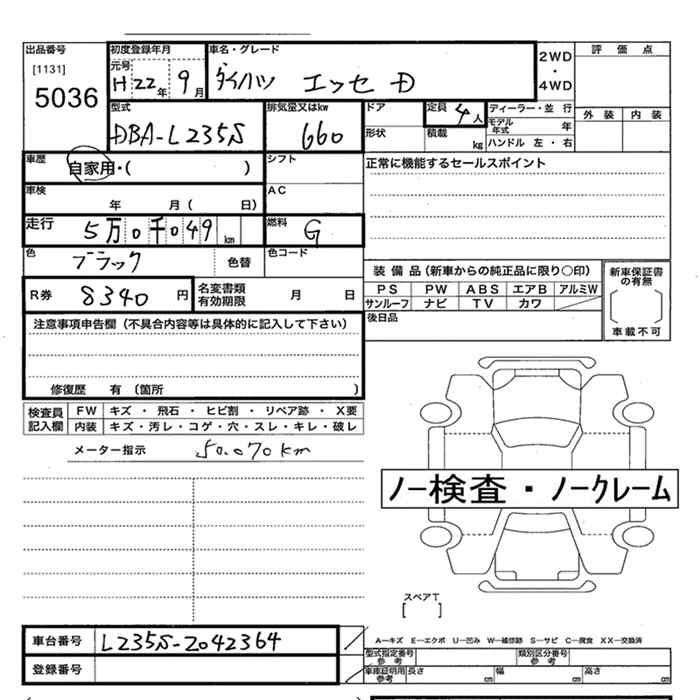 出品番号
[1131]
5036
初度登録年月
元号
H22年 9月
車名・グレード
ダイハツ エッセ D
2WD
・
4WD
評価点
外装 内装
型式
DBA-L235S
排気量又はkw
660
ドア
形状
定員
4人
積載
kg
ディーラー・並行
モデル年式 年
ハンドル 左・右
車歴
自家用・( )
シフト
正常に機能するセールスポイント
車検
年 月( 日)
AC
走行
5万0千049km
燃料
G
色
ブラック
色替
色コード
R券
8340円
名変書類有効期限
月 日
装備品(新車からの純正品に限り○印)
PS PW ABS エアB アルミW
サンルーフ ナビ TV カワ
後日品
新車保証書の有無
車載不可
注意事項申告欄(不具合内容等は具体的に記入して下さい)
修復歴 有 (箇所 )
検査員記入欄
FW キズ・飛石・ヒビ割・リペア跡・X要
内装 キズ・汚レ・コゲ・穴・スレ・キレ・破レ
メーター指示 50.070km
ノー検査・ノークレーム
スペアT
[ ]
車台番号 L235S-2042364
登録番号
A―キズ E―エクボ U―凹み W―補修跡 S―サビ C―腐食 XX―交換済
型式指定番号参考
類別区分番号参考
車庫証明用参考
長さ cm 幅 cm 高さ cm